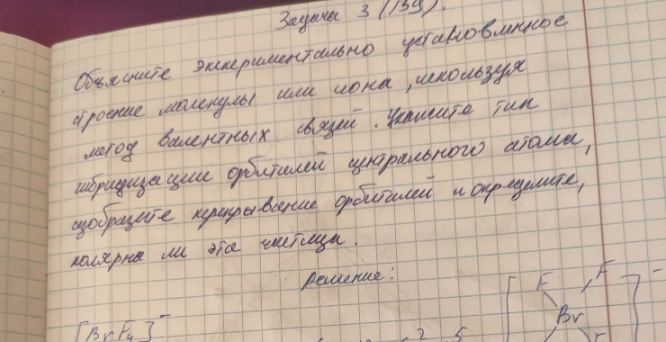 Задача 3 (139).
Объясните экспериментально установленное
строение молекулы или иона, используя
метод валентных связей. Укажите тип
гибридизации орбиталей центрального атома,
изобразите перекрывание орбиталей и определите,
полярна ли эта частица.
Решение:
[BrF₄]⁻
F F
Br
F